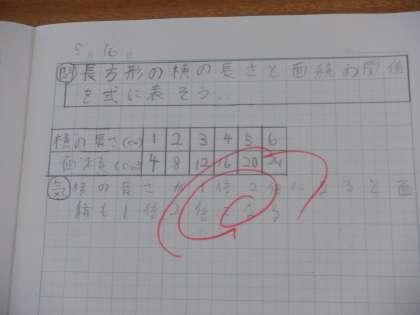 5。16。
問 長方形の横の長さと面積の関係
を式に表そう。
横の長さ(cm) 1 2 3 4 5 6
面積(cm²) 4 8 12 16 20 24
横の長さが1倍2倍になると面
積も1倍2倍になる